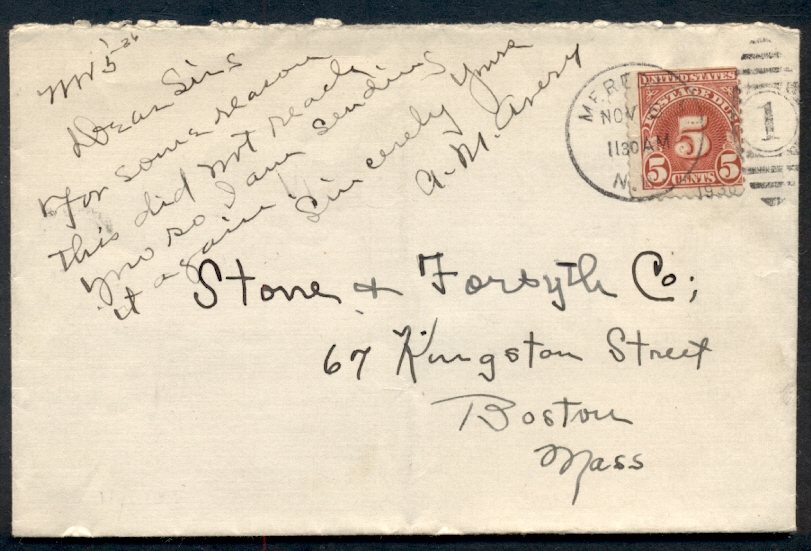 Nov 5-26
Dear Sirs
For some reason
this did not reach
you so I am sending
it again Sincerely Yours
A. M. Avery
MERE
NOV
1130 AM
N.
1
UNITED STATES
POSTAGE DUE
5
5 CENTS 5
Stone & Forsyth Co;
67 Kingston Street
Boston
Mass